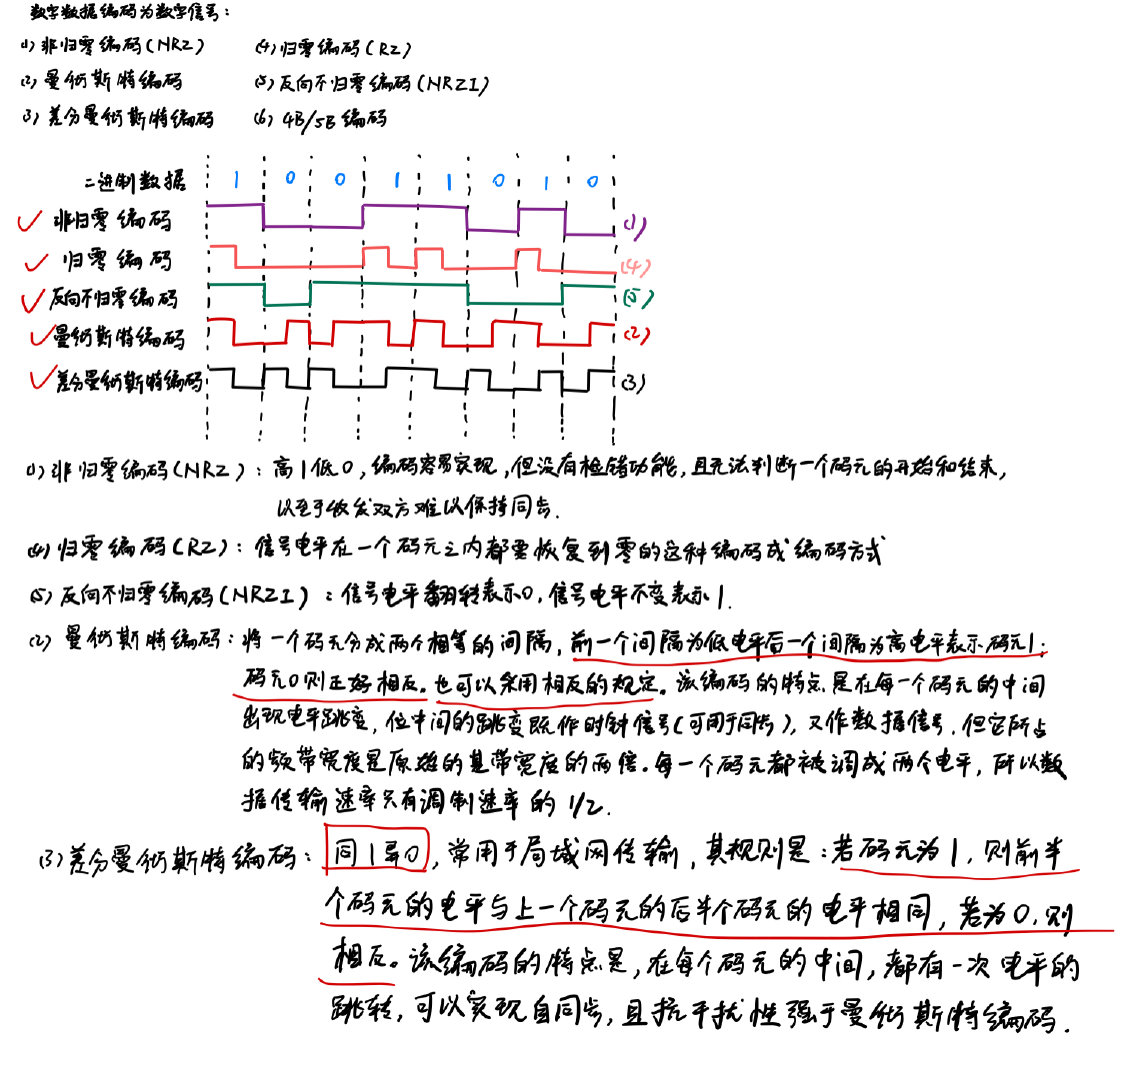 数字数据编码为数字信号:
(1) 非归零编码(NRZ) (4) 归零编码(RZ)
(2) 曼彻斯特编码 (5) 反向不归零编码(NRZI)
(3) 差分曼彻斯特编码 (6) 4B/5B 编码
二进制数据 1 0 0 1 1 0 1 0
非归零编码 (1)
归零编码 (4)
反向不归零编码 (5)
曼彻斯特编码 (2)
差分曼彻斯特编码 (3)
(1) 非归零编码(NRZ): 高1低0, 编码容易实现, 但没有检错功能, 且无法判断一个码元的开始和结束,
以至于收发双方难以保持同步.
(4) 归零编码(RZ): 信号电平在一个码元之内都要恢复到零的这种编码成编码方式
(5) 反向不归零编码(NRZI): 信号电平翻转表示0, 信号电平不变表示1.
(2) 曼彻斯特编码: 将一个码元分成两个相等的间隔, 前一个间隔为低电平后一个间隔为高电平表示码元1;
码元0则正好相反。也可以采用相反的规定。该编码的特点是在每一个码元的中间
出现电平跳变, 位中间的跳变既作时钟信号(可用于同步), 又作数据信号, 但它所占
的频带宽度是原始的基带宽度的两倍。每一个码元都被调成两个电平, 所以数
据传输速率只有调制速率的 1/2.
(3) 差分曼彻斯特编码: 同1异0, 常用于局域网传输, 其规则是: 若码元为1, 则前半
个码元的电平与上一个码元的后半个码元的电平相同, 若为0, 则
相反。该编码的特点是, 在每个码元的中间, 都有一次电平的
跳转, 可以实现自同步, 且抗干扰性强于曼彻斯特编码.